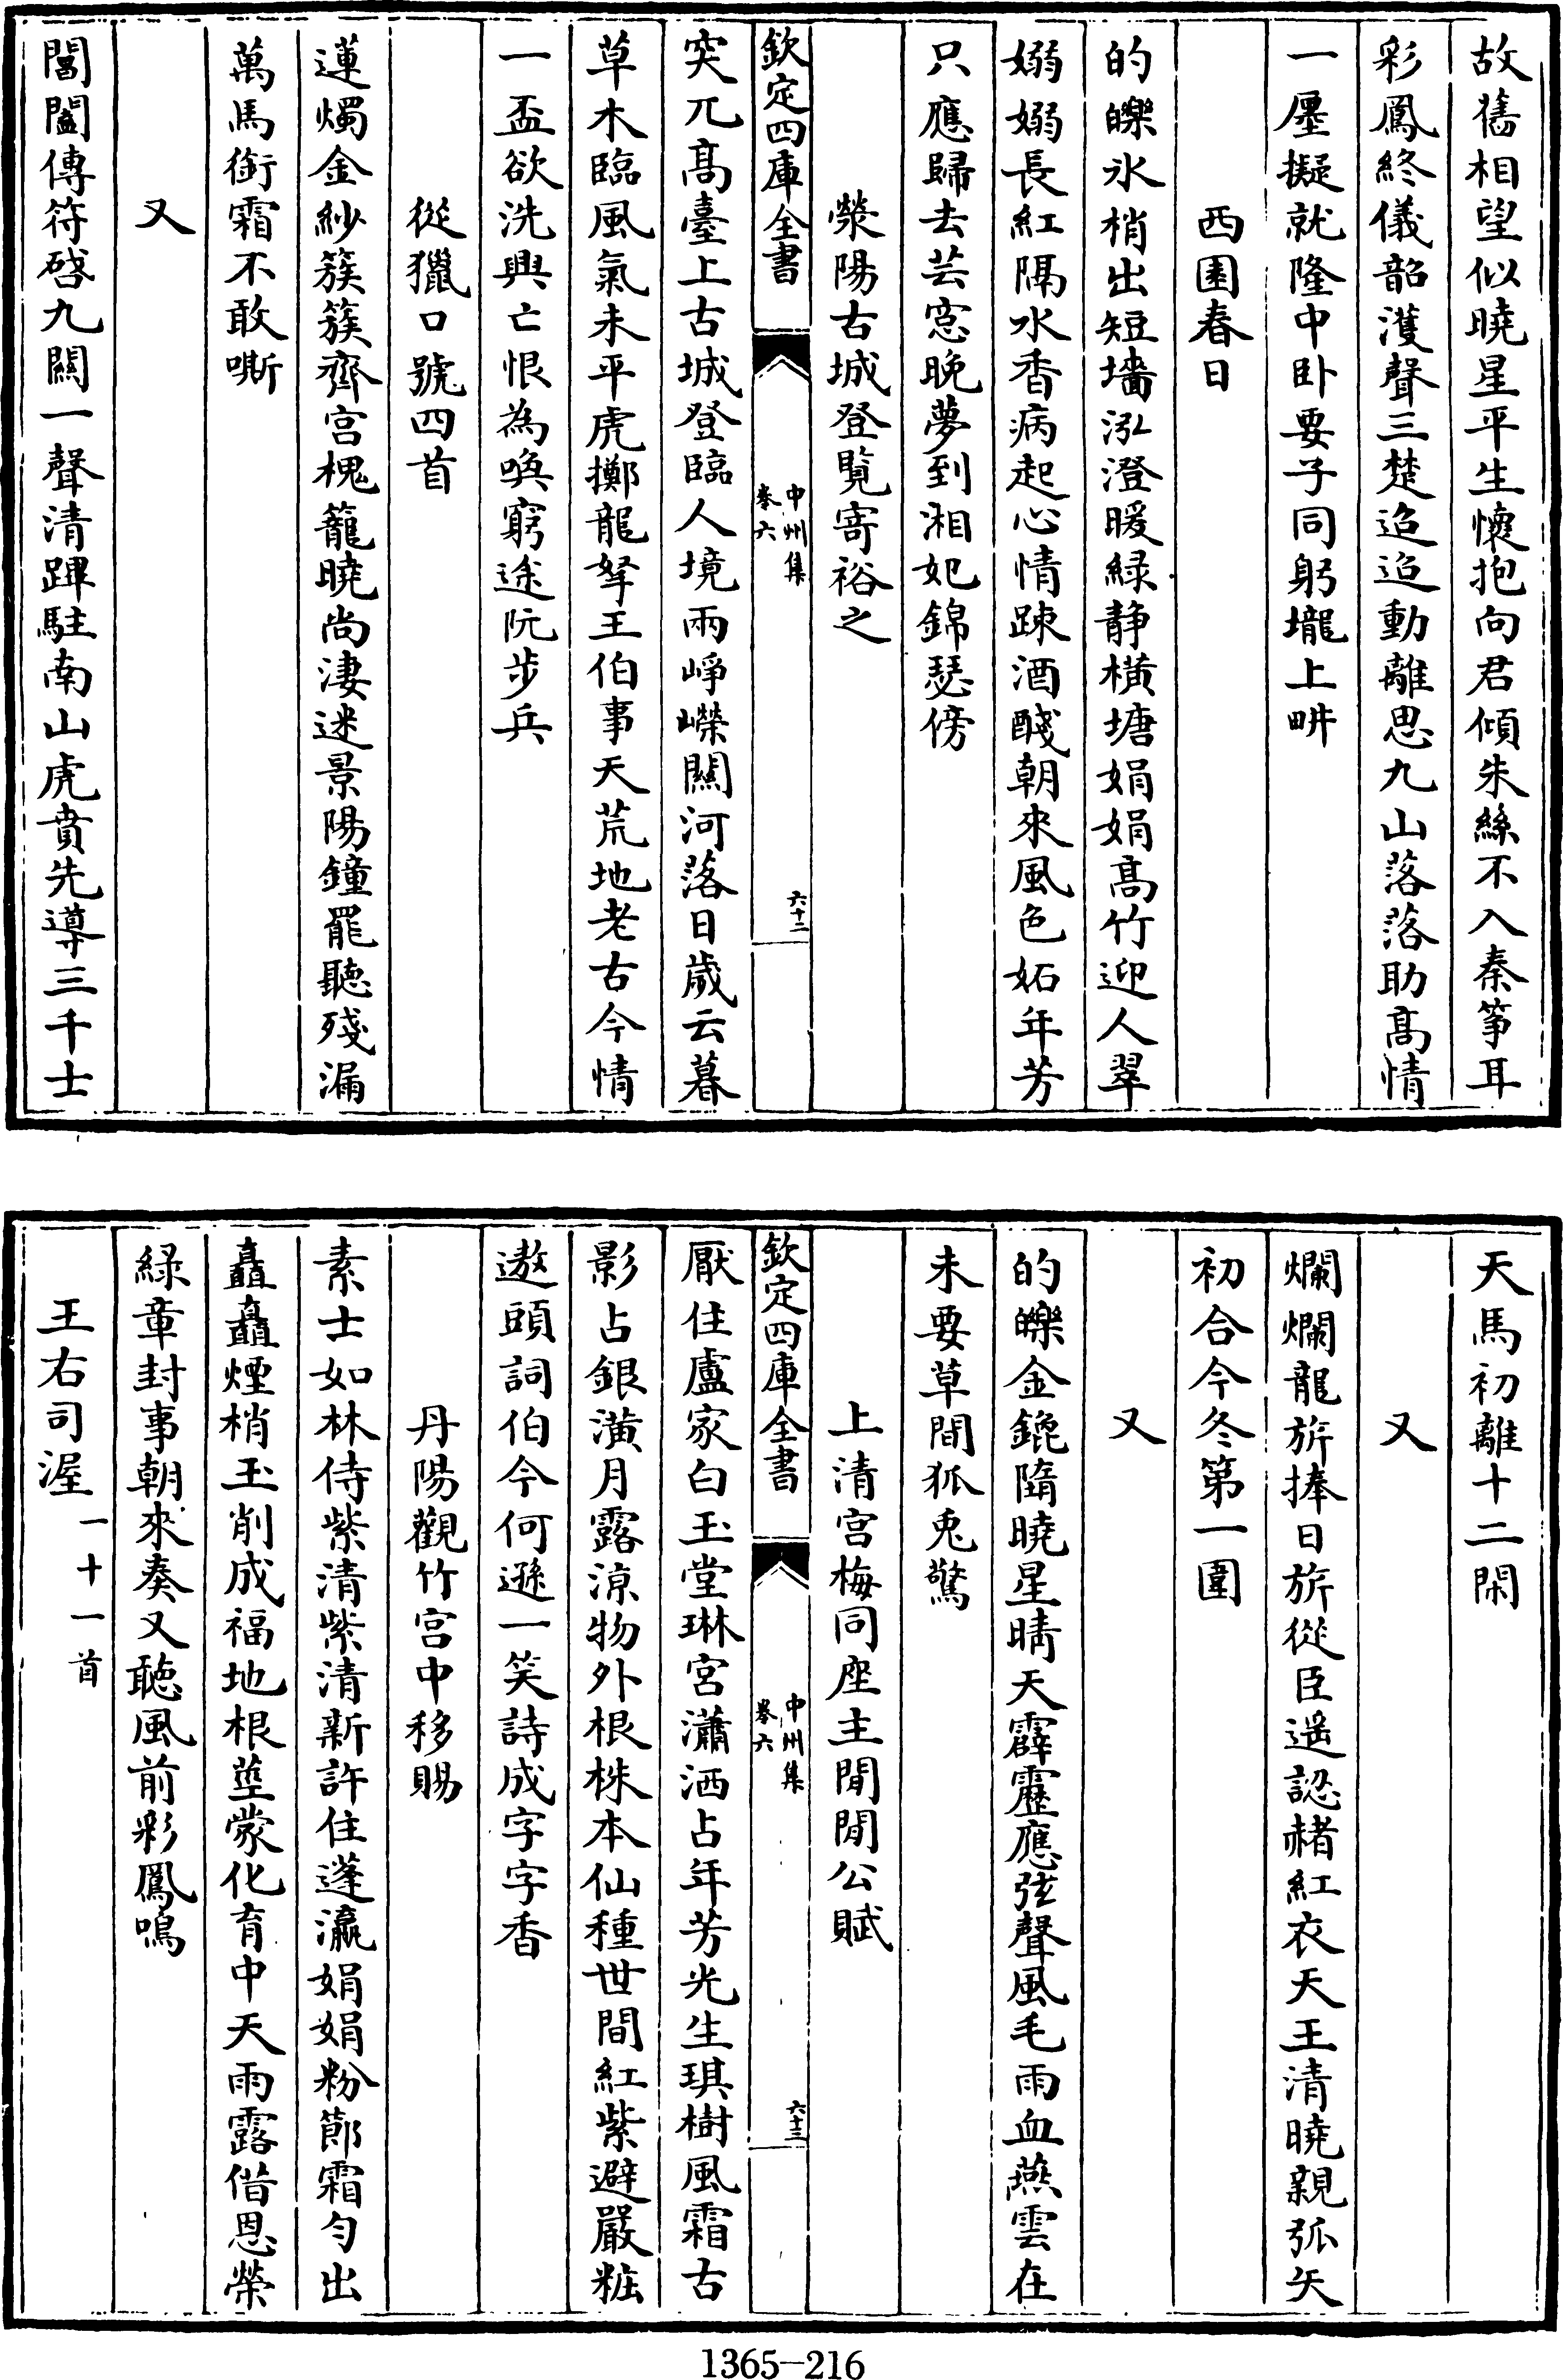 故舊相望似曉星平生懷抱向君傾朱絲不入秦筝耳
彩鳳終儀韶濩聲三楚迢迢動離思九山落落助髙情
一廛擬就隆中卧要子同躬壠上畊
西園春日
的皪氷梢出短墻泓澄暖緑静横塘娟娟髙竹迎人翠
嫋嫋長紅隔水香病起心情疎酒醆朝來風色妬年芳
只應歸去芸窓晩夢到湘妃錦瑟傍
滎陽古城登覧寄裕之
欽定四庫全書
中州集
卷六
六十二
突兀髙臺上古城登臨人境兩崢嶸闗河落日歲云暮
草木臨風氣未平虎擲龍拏王伯事天荒地老古今情
一盃欲洗興亡恨為喚窮途阮步兵
從獵口號四首
蓮燭金紗簇簇齊宫槐籠曉尚淒迷景陽鐘罷聽殘漏
萬馬銜霜不敢嘶
又
閶闔傳符啓九闗一聲清蹕駐南山虎賁先導三千士
天馬初離十二閑
又
爛爛龍旂捧日旂從臣遥認赭紅衣天王清曉親弧矢
初合今冬第一圍
又
的皪金鎞隋曉星晴天霹靂應弦聲風毛雨血燕雲在
未要草間狐兎驚
上清宫梅同座主閒閒公賦
欽定四庫全書
中州集
卷六
六十三
厭住盧家白玉堂琳宫瀟洒占年芳光生琪樹風霜古
影占銀潢月露涼物外根株本仙種世間紅紫避嚴粧
遨頭詞伯今何遜一笑詩成字字香
丹陽觀竹宫中移賜
素士如林侍紫清紫清新許住蓬瀛娟娟粉節霜匀出
矗矗煙梢玉削成福地根莖蒙化育中天雨露借恩榮
緑章封事朝來奏又聴風前彩鳳鳴
王右司渥 一十一首
1365—216